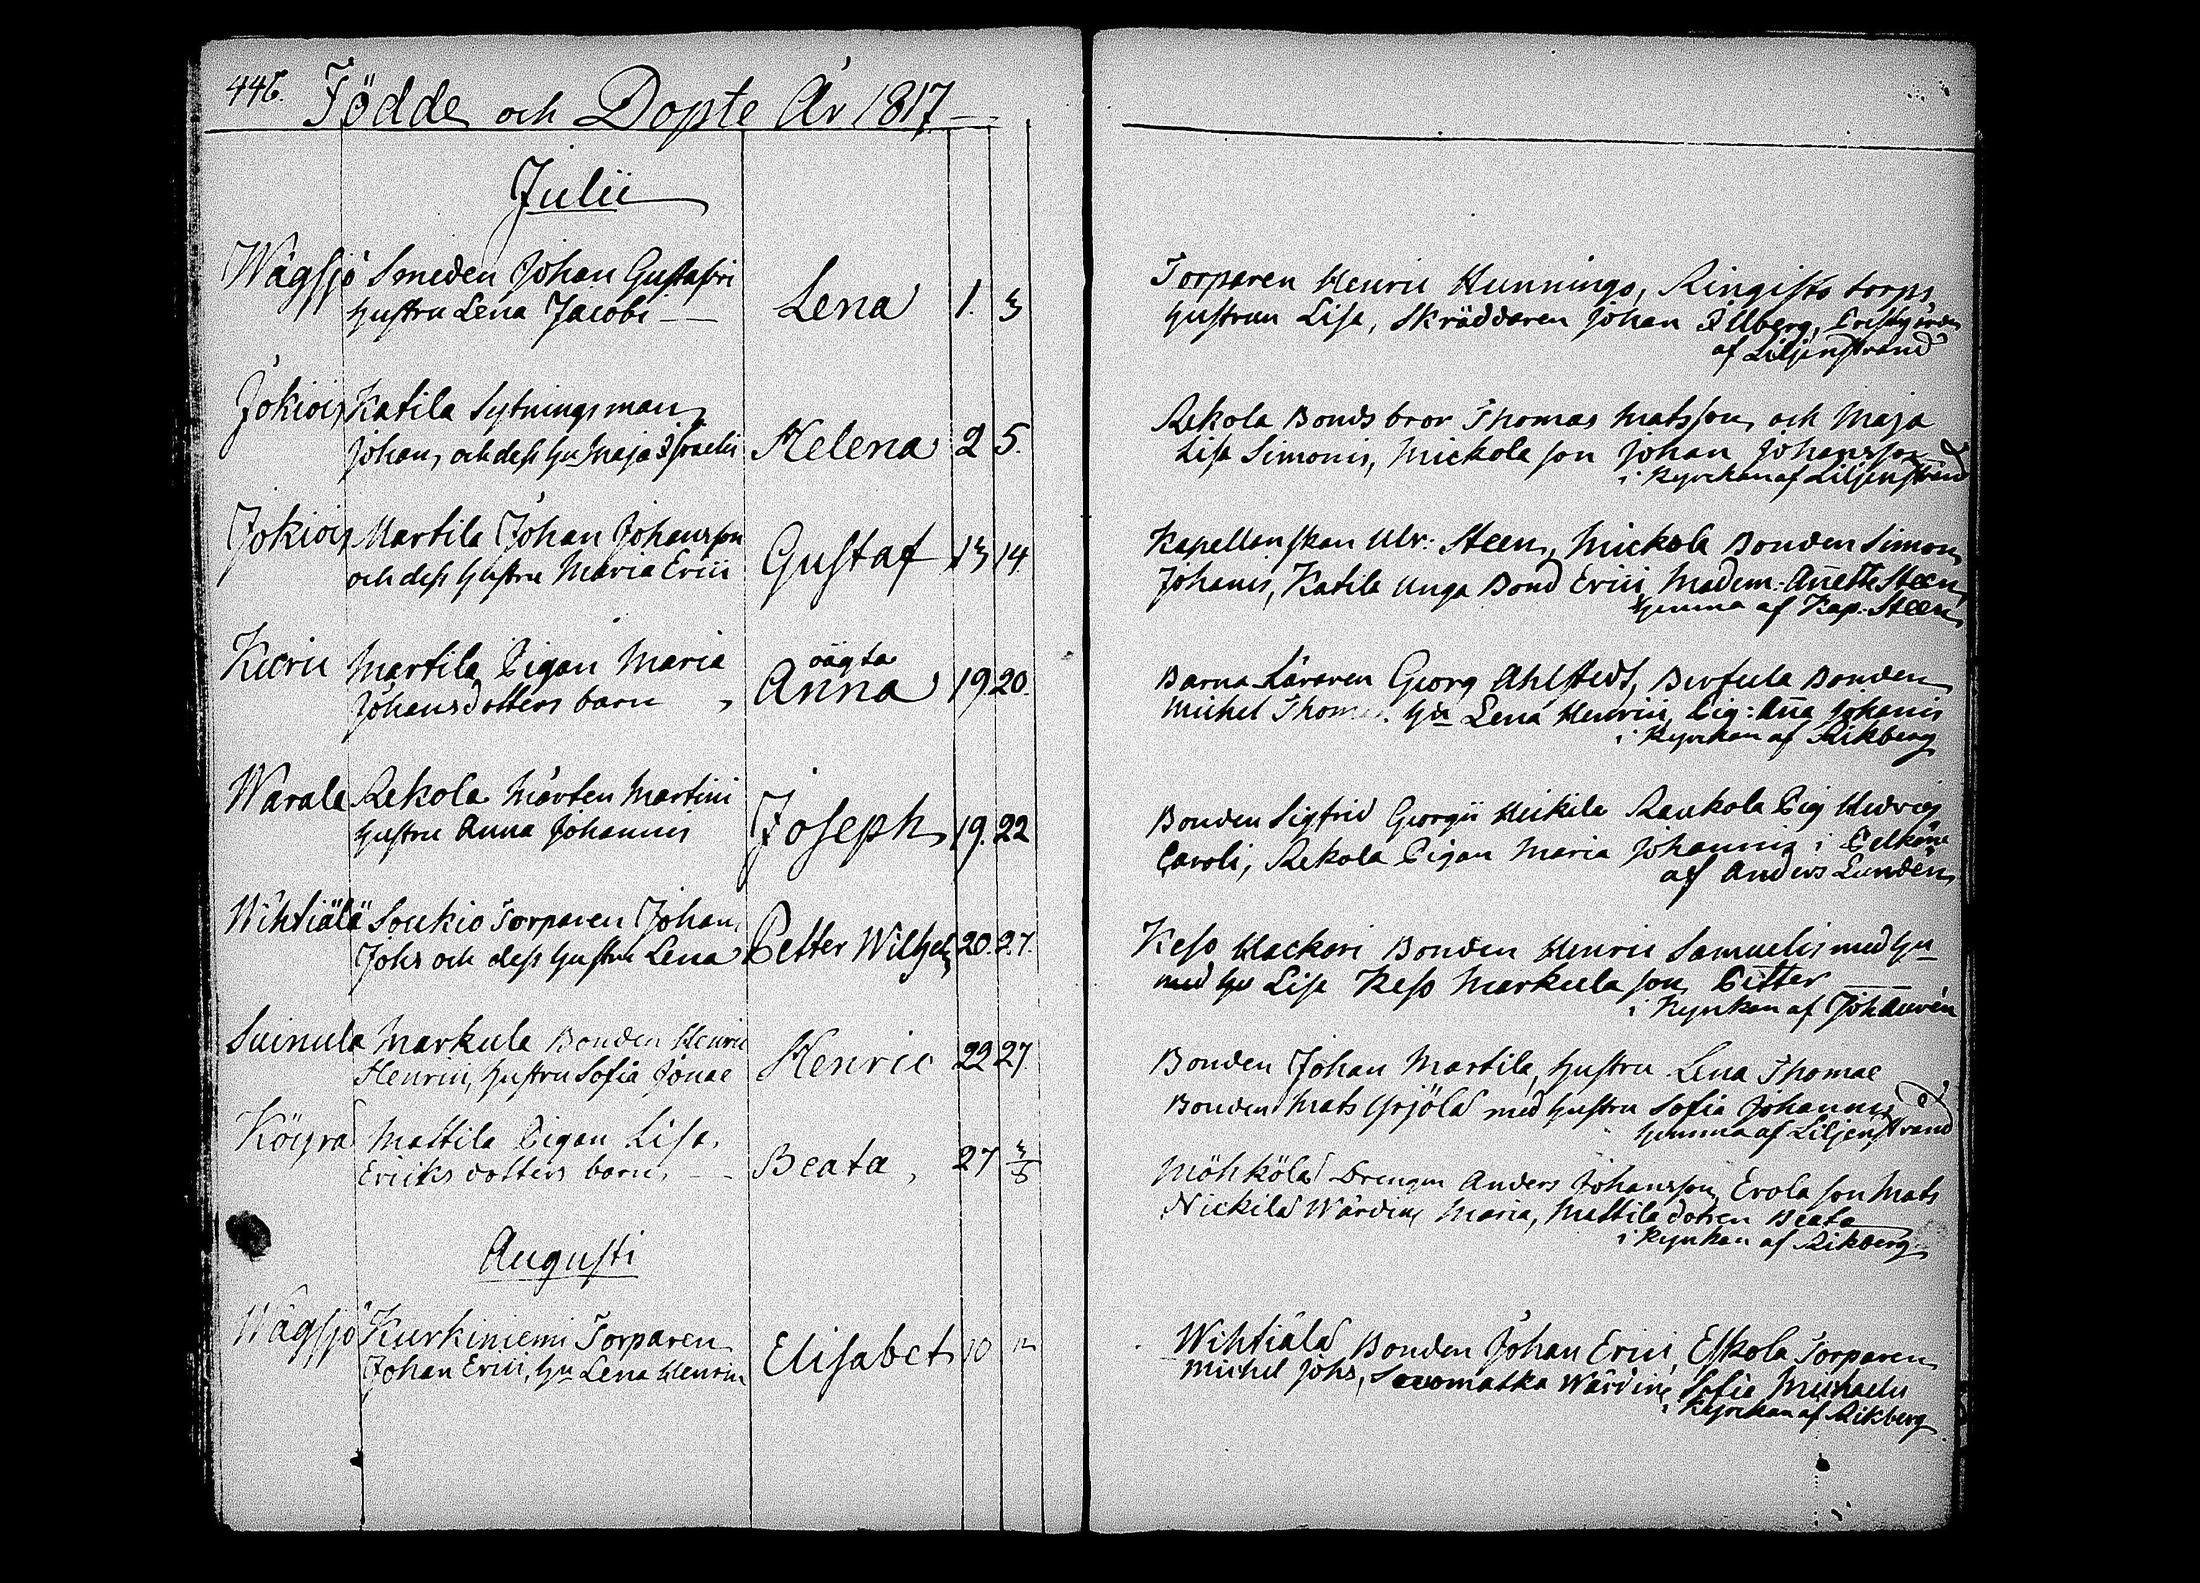 446. Födde och Dopte År 1817
Julii
Wågsjö Smeden Johan Gustafsri
hustru Lena Jacobi
Lena 1. 3
Torparen Henric Hunnings, Ringists torps
hustrun Lisa, Skräddaren Johan
af Liljenstrand
Jokiois Katila Sytningsman
Johan, och dess hu Maja Israelis
Helena 2 5.
Rekola Bonds bror Thomas Matsson, och Maja
Lisa Simonis, Mickola son Johan Johansson
i Kyrckan af Liljenstrand
Jokiois Martila Johan Johansson
och dess hustru Maria Erici
Gustaf 13 14
Kapellanskan Ulr: Steen, Mickola Bonden Simon
Johanis, Katila Unga Bond Erici, Madem: Anette Steen
hemma af Kap. Steen
Martila Pigan Maria
Johansdotters barn
oägta
Anna 19 20.
Barna Läraren Georg Ahlstedt, Bonden
Michel hu Lena Henrici, Pig: Aña Johanis
i Kyrckan af Rikberg
Warala Rekola Mårten Martini
hustru Anna Johannis
Joseph 19. 22
Bonden Sigfrid Georgii Heikila Raukola Pig Hedvig
Caroli, Rekola Pigan Maria Johannis i Pelkäne
af Anders Lunden
Wihtiälä Soukio Torparen Johan
Johs och dess hustru Lena
Petter Wilhelm 20. 27.
Keso Hackari Bonden Henric Samuelis med hu
med hu Lisa Keso Markula son Petter
i Kyrkan af
Suinula Markula Bonden Henric
Henrici, hustru Sofia Jonae
Henric 22 27.
Bonden Johan Martila, hustru Lena Thomae
Bonden Mats Yrjölä med hustru Sofia Johannis
hemma af Liljenstrand
Mattila Pigan Lisa
Ericks dotters barn
Beata, 27 3/8
Möhkölä Drengen Anders Johansson, Erola son Mats
Nickilä Wärdin Maria, Mattila dotren Beata
i Kyrkan af Rikberg
Augusti
Wågsjö Kurkiniemi Torparen
Johan Erici, hu Lena Henrici
Elisabet 10
Wihtiälä Bonden Johan Erici, Eskola Torparen
Michel Johs, Wärdin Sofia Michaelis
i Kyrckan af Rikberg